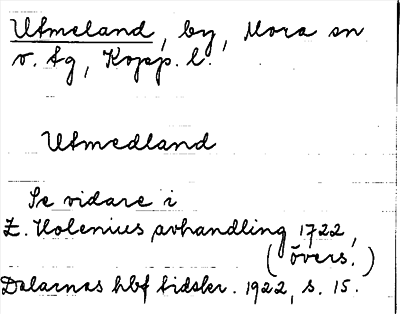 Utmeland, by, Mora sn
v. tg, Kopp. l.
Utmedland
Se vidare i
E. Holenius avhandling 1722,
(övers.)
Dalarnas hbf tidskr. 1922, s. 15.